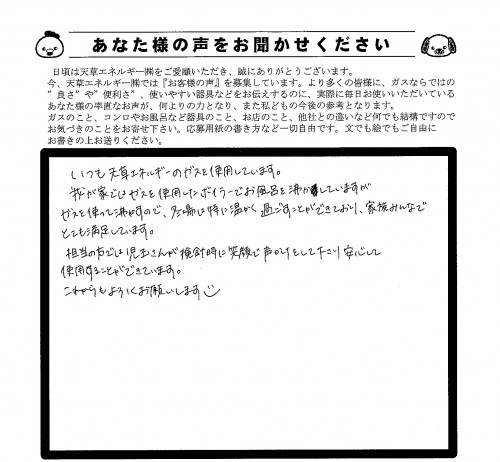 あなた様の声をお聞かせください
日頃は天草エネルギー㈱をご愛顧いただき、誠にありがとうございます。
今、天草エネルギー㈱では『お客様の声』を募集しています。より多くの皆様に、ガスならではの
"良さ"や"便利さ"、使いやすい器具などをお伝えするのに、実際に毎日お使いいただいている
あなた様の率直なお声が、何よりの力となり、また私どもの今後の参考となります。
ガスのこと、コンロやお風呂など器具のこと、お店のこと、他社との違いなど何でも結構ですので
お気づきのことをお寄せ下さい。応募用紙の書き方など一切自由です。文でも絵でもご自由に
お書きの上お送りください。
いつも天草エネルギーのガスを使用しています。
我が家ではガスを使用したボイラーでお風呂を沸かしていますが
ガスを使って沸かすので、冬場は特に温かく過ごすことができており、家族みんなで
とても満足しています。
担当の方では児玉さんが検針時に笑顔で声かけをして下さり安心して
使用することができています。
これからもよろしくお願いします